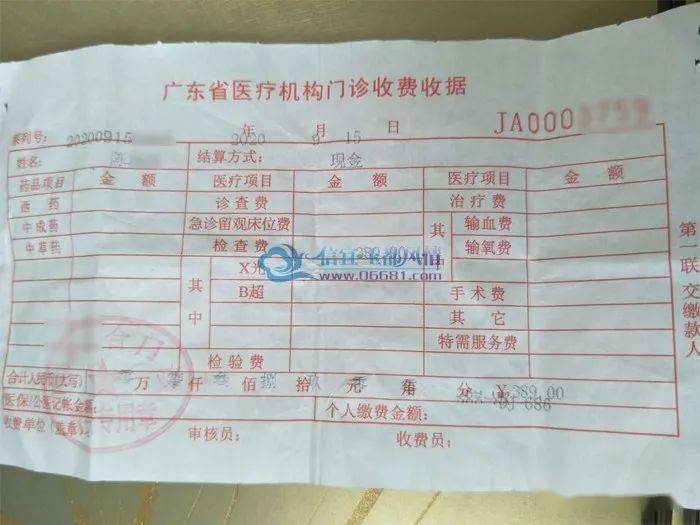 广东省医疗机构门诊收费收据
JA000
系列号: 20200915 2020 年 9 月 15 日
姓名: 结算方式: 现金
药品项目 金 额 医疗项目 金 额 医疗项目 金 额
西 药 诊 查 费 治 疗 费
中 成 药 急诊留观床位费 其 输血费
中 草 药 检 查 费 输氧费
信宜玉都风情
www.06681.com
其 X光
B超 手 术 费
中 其 它
特需服务费
检 验 费
合计人民币(大写) 零 万 零 仟 叁 佰 捌 拾 玖 元 零 角 分 ¥ 389.00
医保/公医记帐金额: 个人缴费金额:
收费单位(盖章) 审核员: 收费员:
专用章
第一联 交缴款人